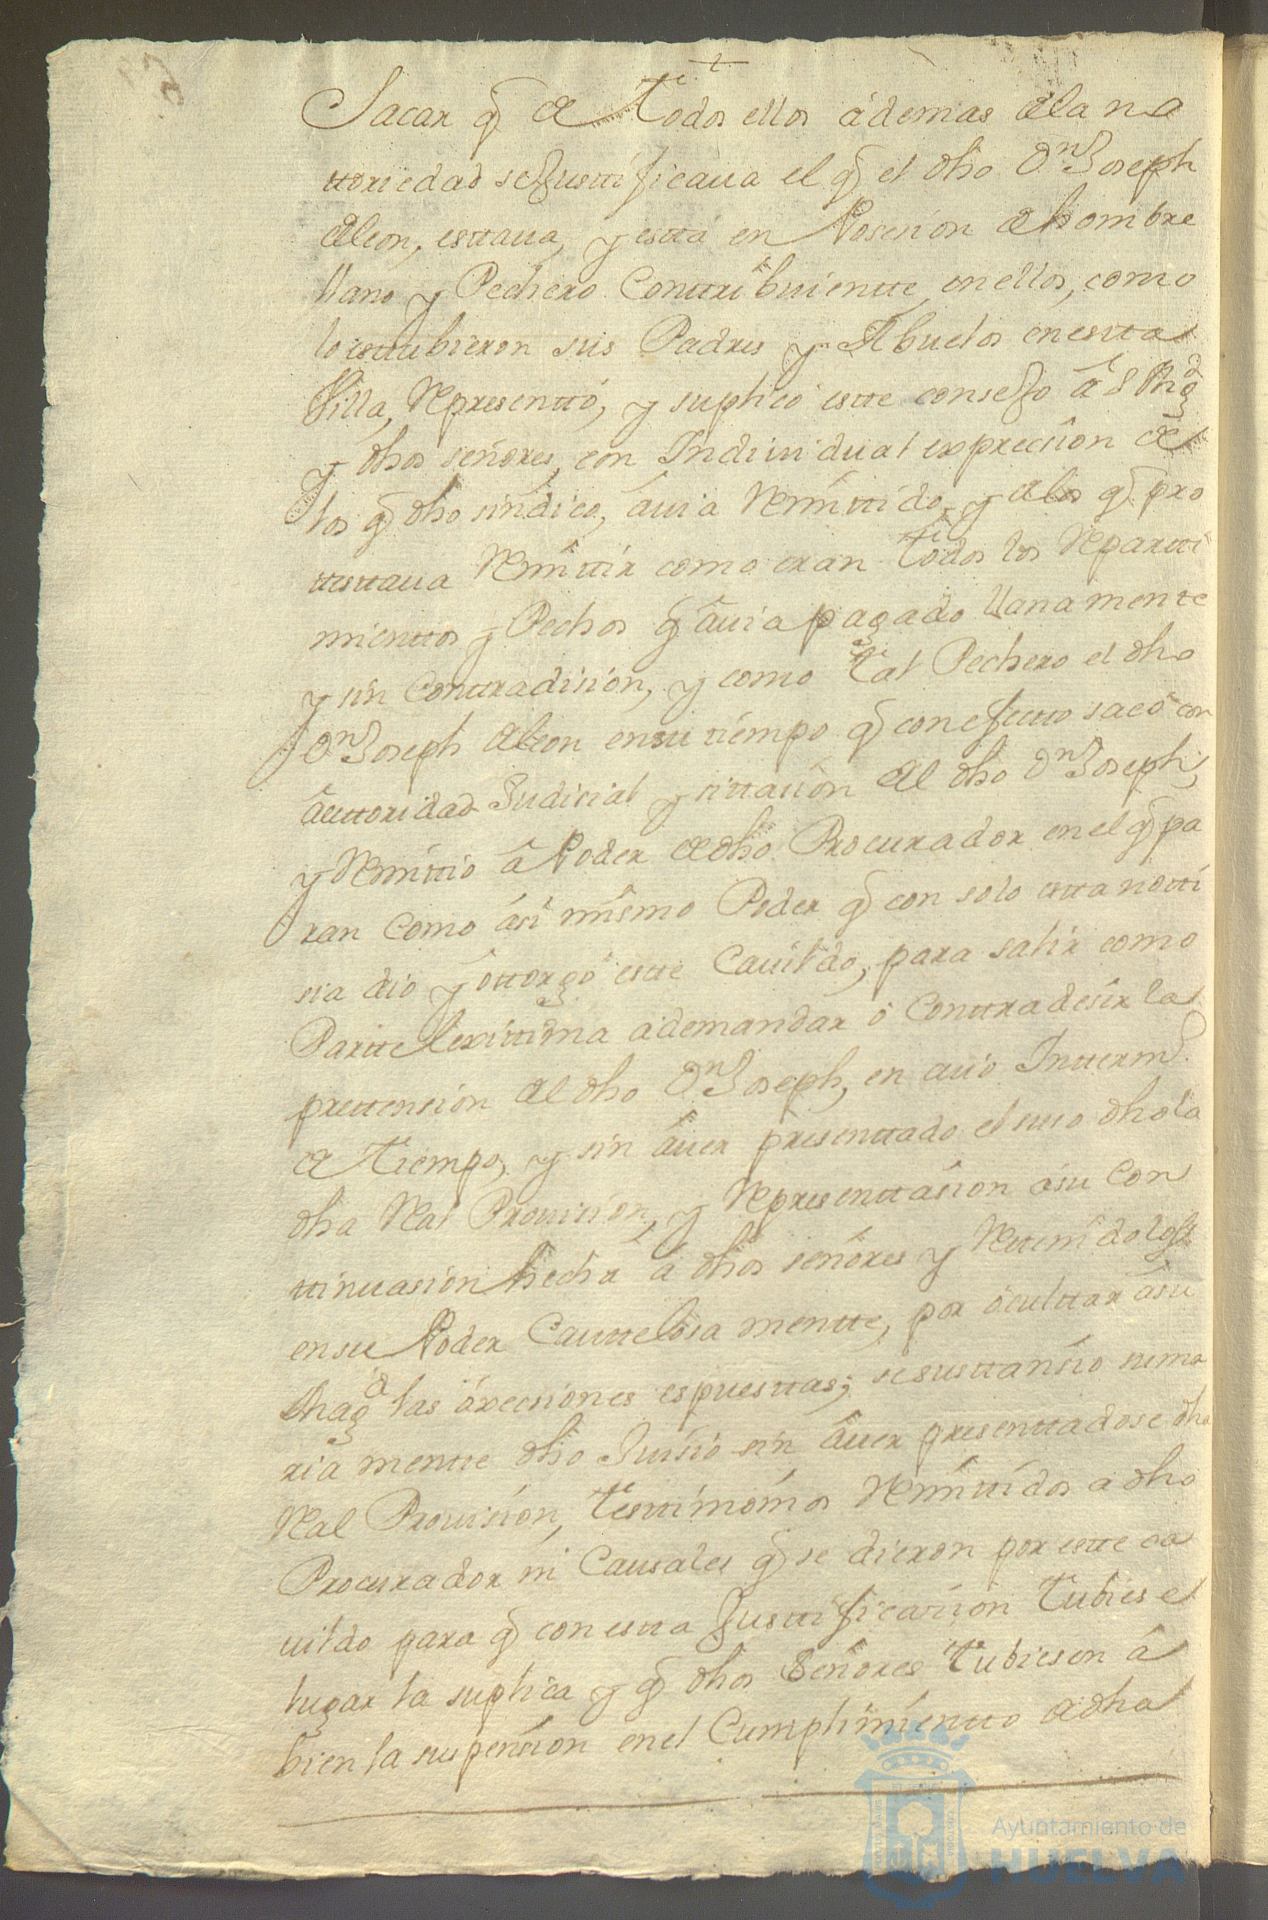 Sacar q̃ de Todos ellos ademas de la no
ttoriedad se Justtificaua el q̃ el dho Dn Joseph
de leon, esttaua, y estta en Posesion de hombre
llano y Pechero Conttribuientte en ellos, como
lo esttubieron sus Padres y Abuelos en estta
Villa, Representtó, y suplico estte consejo â S Magd
y dhos señores, con Indiuidual exprecion de
los q̃ dho sindico, âuia Remittido, y de los q̃ pro
ttesttaua Remittir como eran Todos los Repartti
mienttos y Pechos q̃ âuia pagado llanamente
y sin Conttradision, y como Tal Pechero el dho
Dn Joseph de leon en su tiempo q̃ con efectto sacó con
âuttoridad Judicial y sittasion del dho Dn Joseph,
y Remittio â Poder de dho Procurador en el q̃ pa
ran como ási mismo Poder q̃ con solo estta notti
sia dio y ôttorgó estte Cauildo, para salir como
Partte lexittima ademandar ô Conttradesir la
prettension del dho Dn Joseph, en cuio Intterm.o
de Tiempo, y sin âuer presenttado el suso dho la
dha Real Prouision, y Representtasion âsu Con
ttinuasion hecha â dhos señores y Retenidolos
en su Poder Cauttelosa mentte, por ôculttar âsu
Magd las ôxecsiones espuesttas; se susttansio suma
ria mentte dho Juisio sin âuer presenttadose dha
Real Prouision, Testtimonios Remittidos a dho
Procurador ni Causales q̃ se dieron por estte ca
uildo para q̃ con estta Justtificacion Tubiese
lugar la suplica y q̃ dhos Señores Tubiesen â
bien la suspension en el Cumplimientto de dha
Ayuntamiento de
HUELVA